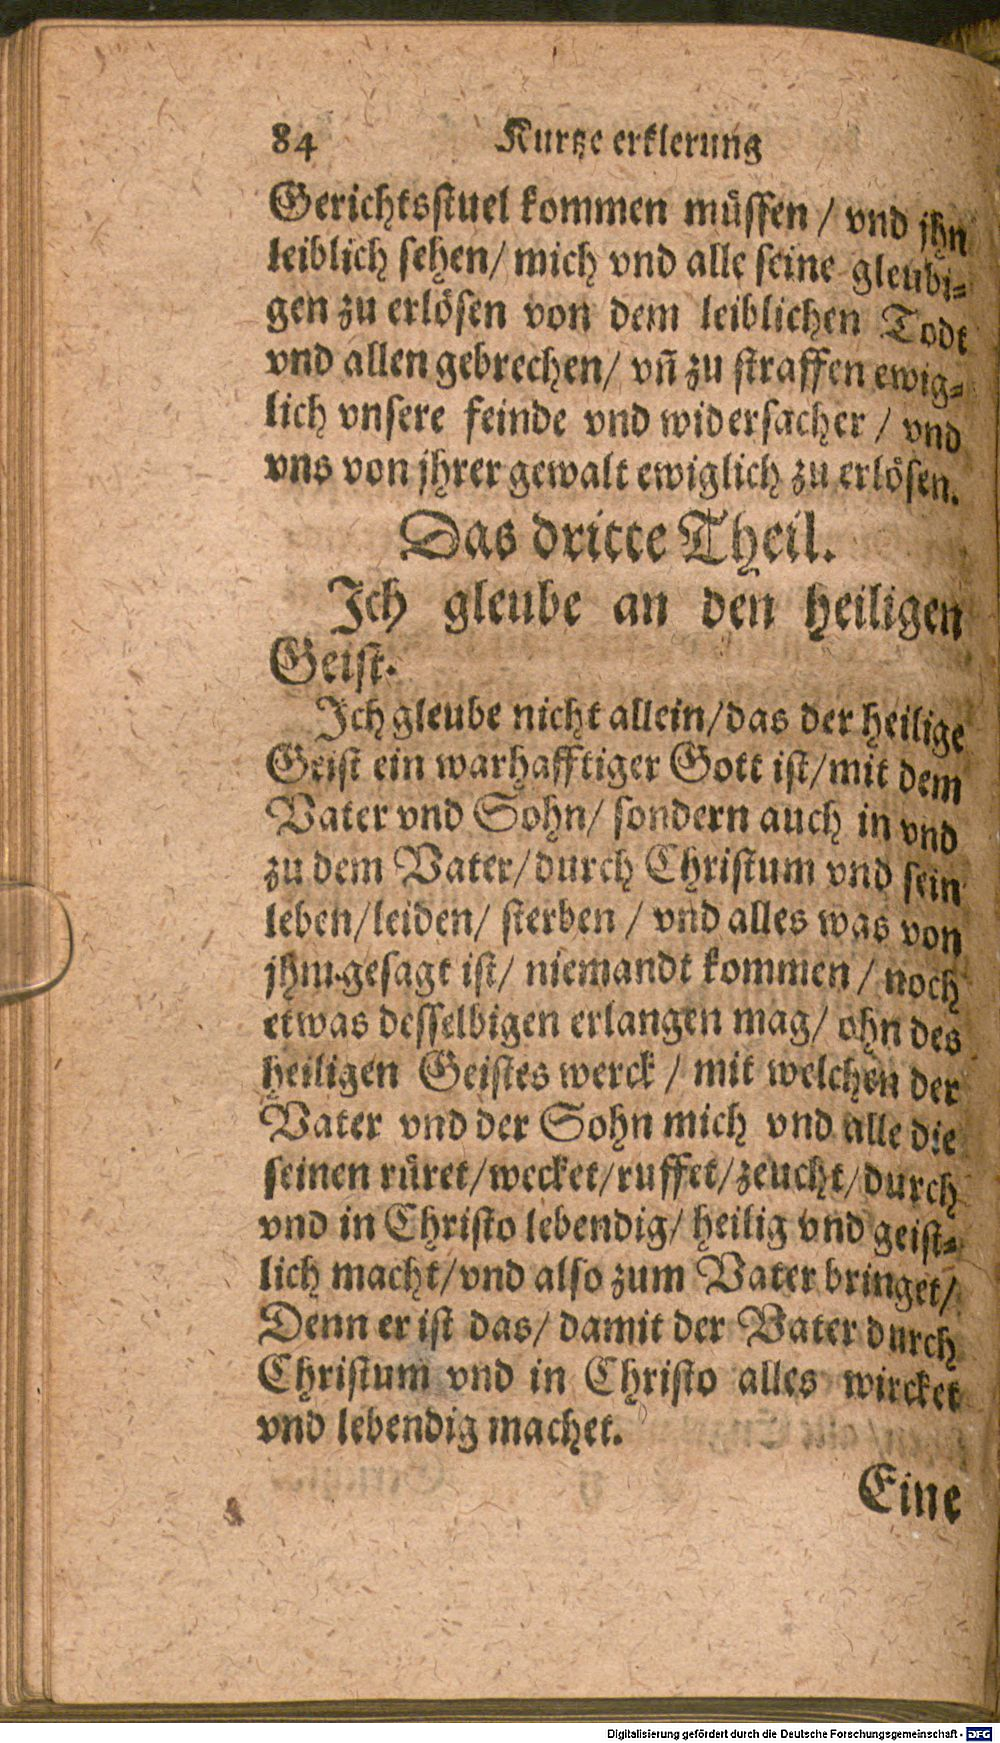 84 Kurtze erklerung
Gerichtsstuel kommen müssen / vnd jhn
leiblich sehen/ mich vnd alle seine gleubi⸗
gen zu erlösen von dem leiblichen Todt
vnd allen gebrechen/ vñ zu straffen ewig⸗
lich vnsere feinde vnd widersacher / vnd
vns von jhrer gewalt ewiglich zu erlösen.
Das dritte Theil.
Ich gleube an den heiligen
Geist.
Ich gleube nicht allein/das der heilige
Geist ein warhafftiger Gott ist/mit dem
Vater vnd Sohn/ sondern auch in vnd
zu dem Vater/durch Christum vnd sein
leben/leiden/ sterben / vnd alles was von
jhm gesagt ist/ niemandt kommen / noch
etwas desselbigen erlangen mag/ ohn des
heiligen Geistes werck / mit welchen der
Vater vnd der Sohn mich vnd alle die
seinen rüret/wecket/ruffet/zeucht/durch
vnd in Christo lebendig/ heilig vnd geist⸗
lich macht/vnd also zum Vater bringet/
Denn er ist das/ damit der Vater durch
Christum vnd in Christo alles wircket
vnd lebendig machet.
Eine
Digitalisierung gefördert durch die Deutsche Forschungsgemeinschaft - DFG